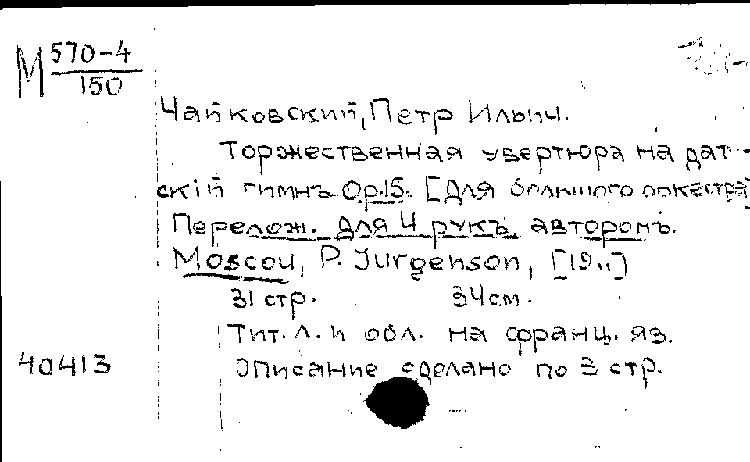 М 570-4
150
Чайковский, Петр Ильич.
Торжественная увертюра на дат-
скій гимнъ Op.15. [Для большого оркестра]
Перелож. для 4 рукъ авторомъ.
Moscou, P. Jurgenson, [19..]
31 стр. 34см.
Тит. л. и обл. на франц. яз.
40413 Описание сделано по 3 стр.